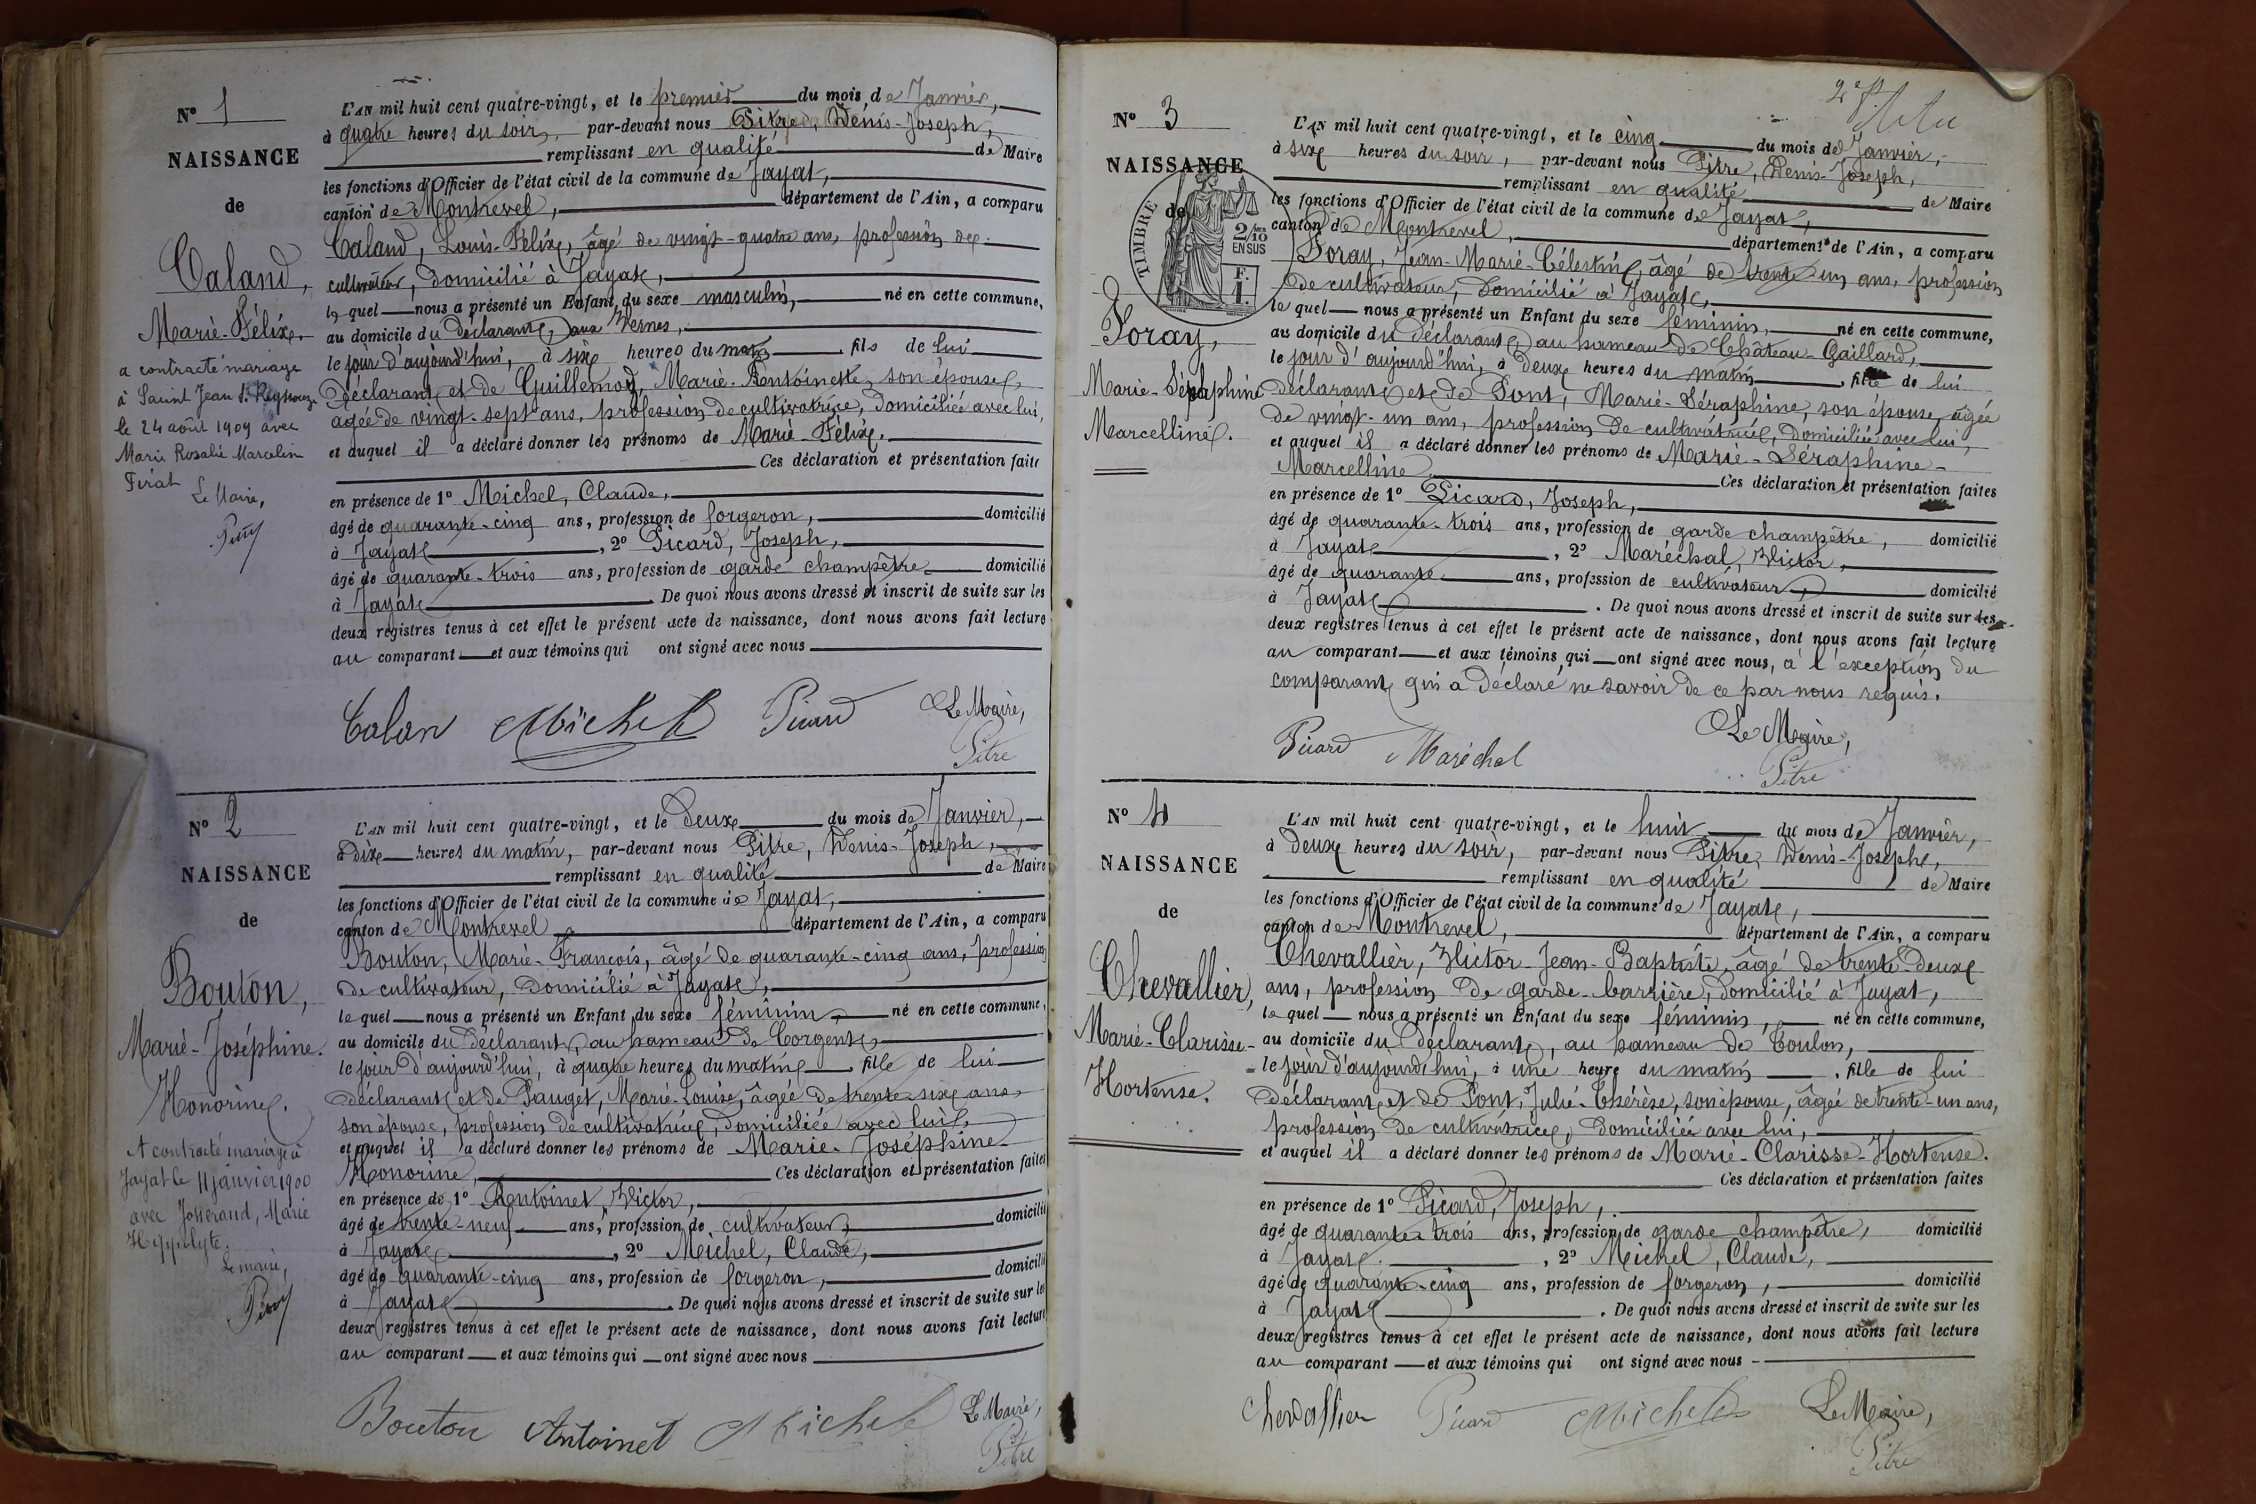 N° 1
NAISSANCE
de
Caland,
Marie-Félix.
a contracté mariage
à Saint Jean s. Reyssouze
le 24 août 1909 avec
Marie Rosalie Marcelin
Férat
Le Maire,
L'AN mil huit cent quatre-vingt, et le premier du mois de Janvier,
à quatre heures du soir, par-devant nous Pitre, Denis-Joseph,
remplissant en qualité de Maire
les fonctions d'Officier de l'état civil de la commune de Jayat,
canton de Montrevel, département de l'Ain, a comparu
Caland, Louis-Félix, âgé de vingt-quatre ans, profession de
cultivateur, domicilié à Jayat,
lequel nous a présenté un Enfant du sexe masculin, né en cette commune,
au domicile du déclarant, aux Vernes,
le jour d'aujourd'hui, à six heures du matin, fils de lui
déclarant et de Guillemod, Marie-Antoinette, son épouse,
agée de vingt-sept ans, profession de cultivatrice, domiciliée avec lui,
et auquel il a déclaré donner les prénoms de Marie-Félix.
Ces déclaration et présentation faites
en présence de 1° Michel, Claude,
âgé de quarante-cinq ans, profession de forgeron, domicilié
à Jayat, 2° Picard, Joseph,
âgé de quarante-trois ans, profession de garde champêtre domicilié
à Jayat. De quoi nous avons dressé et inscrit de suite sur les
deux registres tenus à cet effet le présent acte de naissance, dont nous avons fait lecture
au comparant et aux témoins qui ont signé avec nous
Calan Michel Picard Le Maire,
Pitre
N° 2
NAISSANCE
de
Bouton,
Marie-Joséphine.
Honorine.
A contracté mariage à
Jayat le 11 janvier 1900
avec Josserand, Marie
Hyppolyte.
Le maire,
L'AN mil huit cent quatre-vingt, et le deux du mois de Janvier,
à dix heures du matin, par-devant nous Pitre, Denis-Joseph,
remplissant en qualité de Maire
les fonctions d'Officier de l'état civil de la commune de Jayat,
canton de Montrevel département de l'Ain, a comparu
Bouton, Marie-François, âgé de quarante-cinq ans, profession
de cultivateur, domicilié à Jayat,
lequel nous a présenté un Enfant du sexe féminin, né en cette commune,
au domicile du déclarant, au hameau de Corgent,
le jour d'aujourd'hui, à quatre heures du matin, fille de lui
déclarant et de Pauget, Marie-Louise, âgée de trente-six ans,
son épouse, profession de cultivatrice, domiciliée avec lui,
et auquel il a déclaré donner les prénoms de Marie-Joséphine-
Honorine, Ces déclaration et présentation faites
en présence de 1° Antoinet, Victor,
âgé de trente-neuf ans, profession de cultivateur, domicilié
à Jayat, 2° Michel, Claude,
âgé de quarante-cinq ans, profession de forgeron, domicilié
à Jayat. De quoi nous avons dressé et inscrit de suite sur les
deux registres tenus à cet effet le présent acte de naissance, dont nous avons fait lecture
au comparant et aux témoins qui ont signé avec nous
Bouton Antoinet Michel Le Maire,
Pitre
N° 3
NAISSANCE
de
TIMBRE
2/10 EN SUS
F. 1.
Foray,
Marie-Séraphine
Marcelline.
L'AN mil huit cent quatre-vingt, et le cinq du mois de Janvier,
à six heures du soir, par-devant nous Pitre, Denis-Joseph,
remplissant en qualité de Maire
les fonctions d'Officier de l'état civil de la commune de Jayat,
canton de Montrevel, département de l'Ain, a comparu
Foray, Jean-Marie-Célestin, âgé de trente-un ans, profession
de cultivateur, domicilié à Jayat,
lequel nous a présenté un Enfant du sexe féminin, né en cette commune,
au domicile du déclarant, au hameau de Château-Gaillard,
le jour d'aujourd'hui, à deux heures du matin, fille de lui
déclarant et de Pont, Marie-Séraphine, son épouse, âgée
de vingt-un ans, profession de cultivatrice, domiciliée avec lui,
et auquel il a déclaré donner les prénoms de Marie-Séraphine-
Marcelline Ces déclaration et présentation faites
en présence de 1° Picard, Joseph,
âgé de quarante-trois ans, profession de garde champêtre, domicilié
à Jayat, 2° Maréchal, Victor,
âgé de quarante ans, profession de cultivateur, domicilié
à Jayat. De quoi nous avons dressé et inscrit de suite sur les
deux registres tenus à cet effet le présent acte de naissance, dont nous avons fait lecture
au comparant et aux témoins qui ont signé avec nous, à l'exception du
comparant qui a déclaré ne savoir de ce par nous requis.
Picard Maréchal Le Maire,
Pitre
N° 4
NAISSANCE
de
Chevallier,
Marie-Clarisse-
Hortense.
L'AN mil huit cent quatre-vingt, et le huit du mois de Janvier,
à deux heures du soir, par-devant nous Pitre, Denis-Joseph,
remplissant en qualité de Maire
les fonctions d'Officier de l'état civil de la commune de Jayat,
canton de Montrevel, département de l'Ain, a comparu
Chevallier, Victor-Jean-Baptiste, âgé de trente-deux
ans, profession de garde-barrière, domicilié à Jayat,
lequel nous a présenté un Enfant du sexe féminin, né en cette commune,
au domicile du déclarant, au hameau de Toulon,
le jour d'aujourd'hui, à une heure du matin, fille de lui
déclarant et de Pont, Julie-Thérèse, son épouse, âgée de trente-un ans,
profession de cultivatrice, domiciliée avec lui,
et auquel il a déclaré donner les prénoms de Marie-Clarisse-Hortense.
Ces déclaration et présentation faites
en présence de 1° Picard, Joseph,
âgé de quarante-trois ans, profession de garde champêtre, domicilié
à Jayat, 2° Michel, Claude,
âgé de quarante-cinq ans, profession de forgeron, domicilié
à Jayat. De quoi nous avons dressé et inscrit de suite sur les
deux registres tenus à cet effet le présent acte de naissance, dont nous avons fait lecture
au comparant et aux témoins qui ont signé avec nous
Chevallier Picard Michel Le Maire,
Pitre